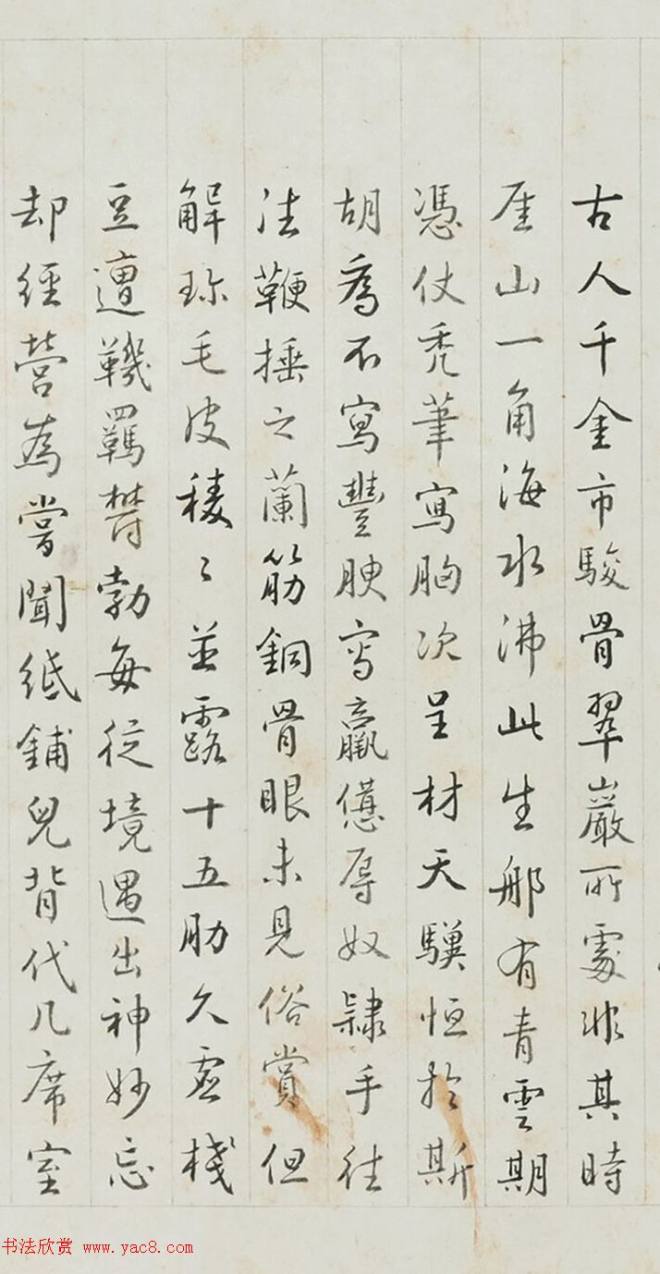 古人千金市駿骨翠巖所處非其時
厓山一角海水沸此生那有青雲期
憑仗禿筆寫胸次呈材天驥恒於斯
胡為不寫豐腴寫羸憊辱奴隸手徃
法鞭捶之蘭筋銅骨眼未見俗賞但
解珎毛皮稜〻並露十五肋久虛棧
豆遭鞿羈欝勃每從境遇出神妙忘
却經營為嘗聞紙鋪兒背代几席室
书法欣赏 www.yac8.com